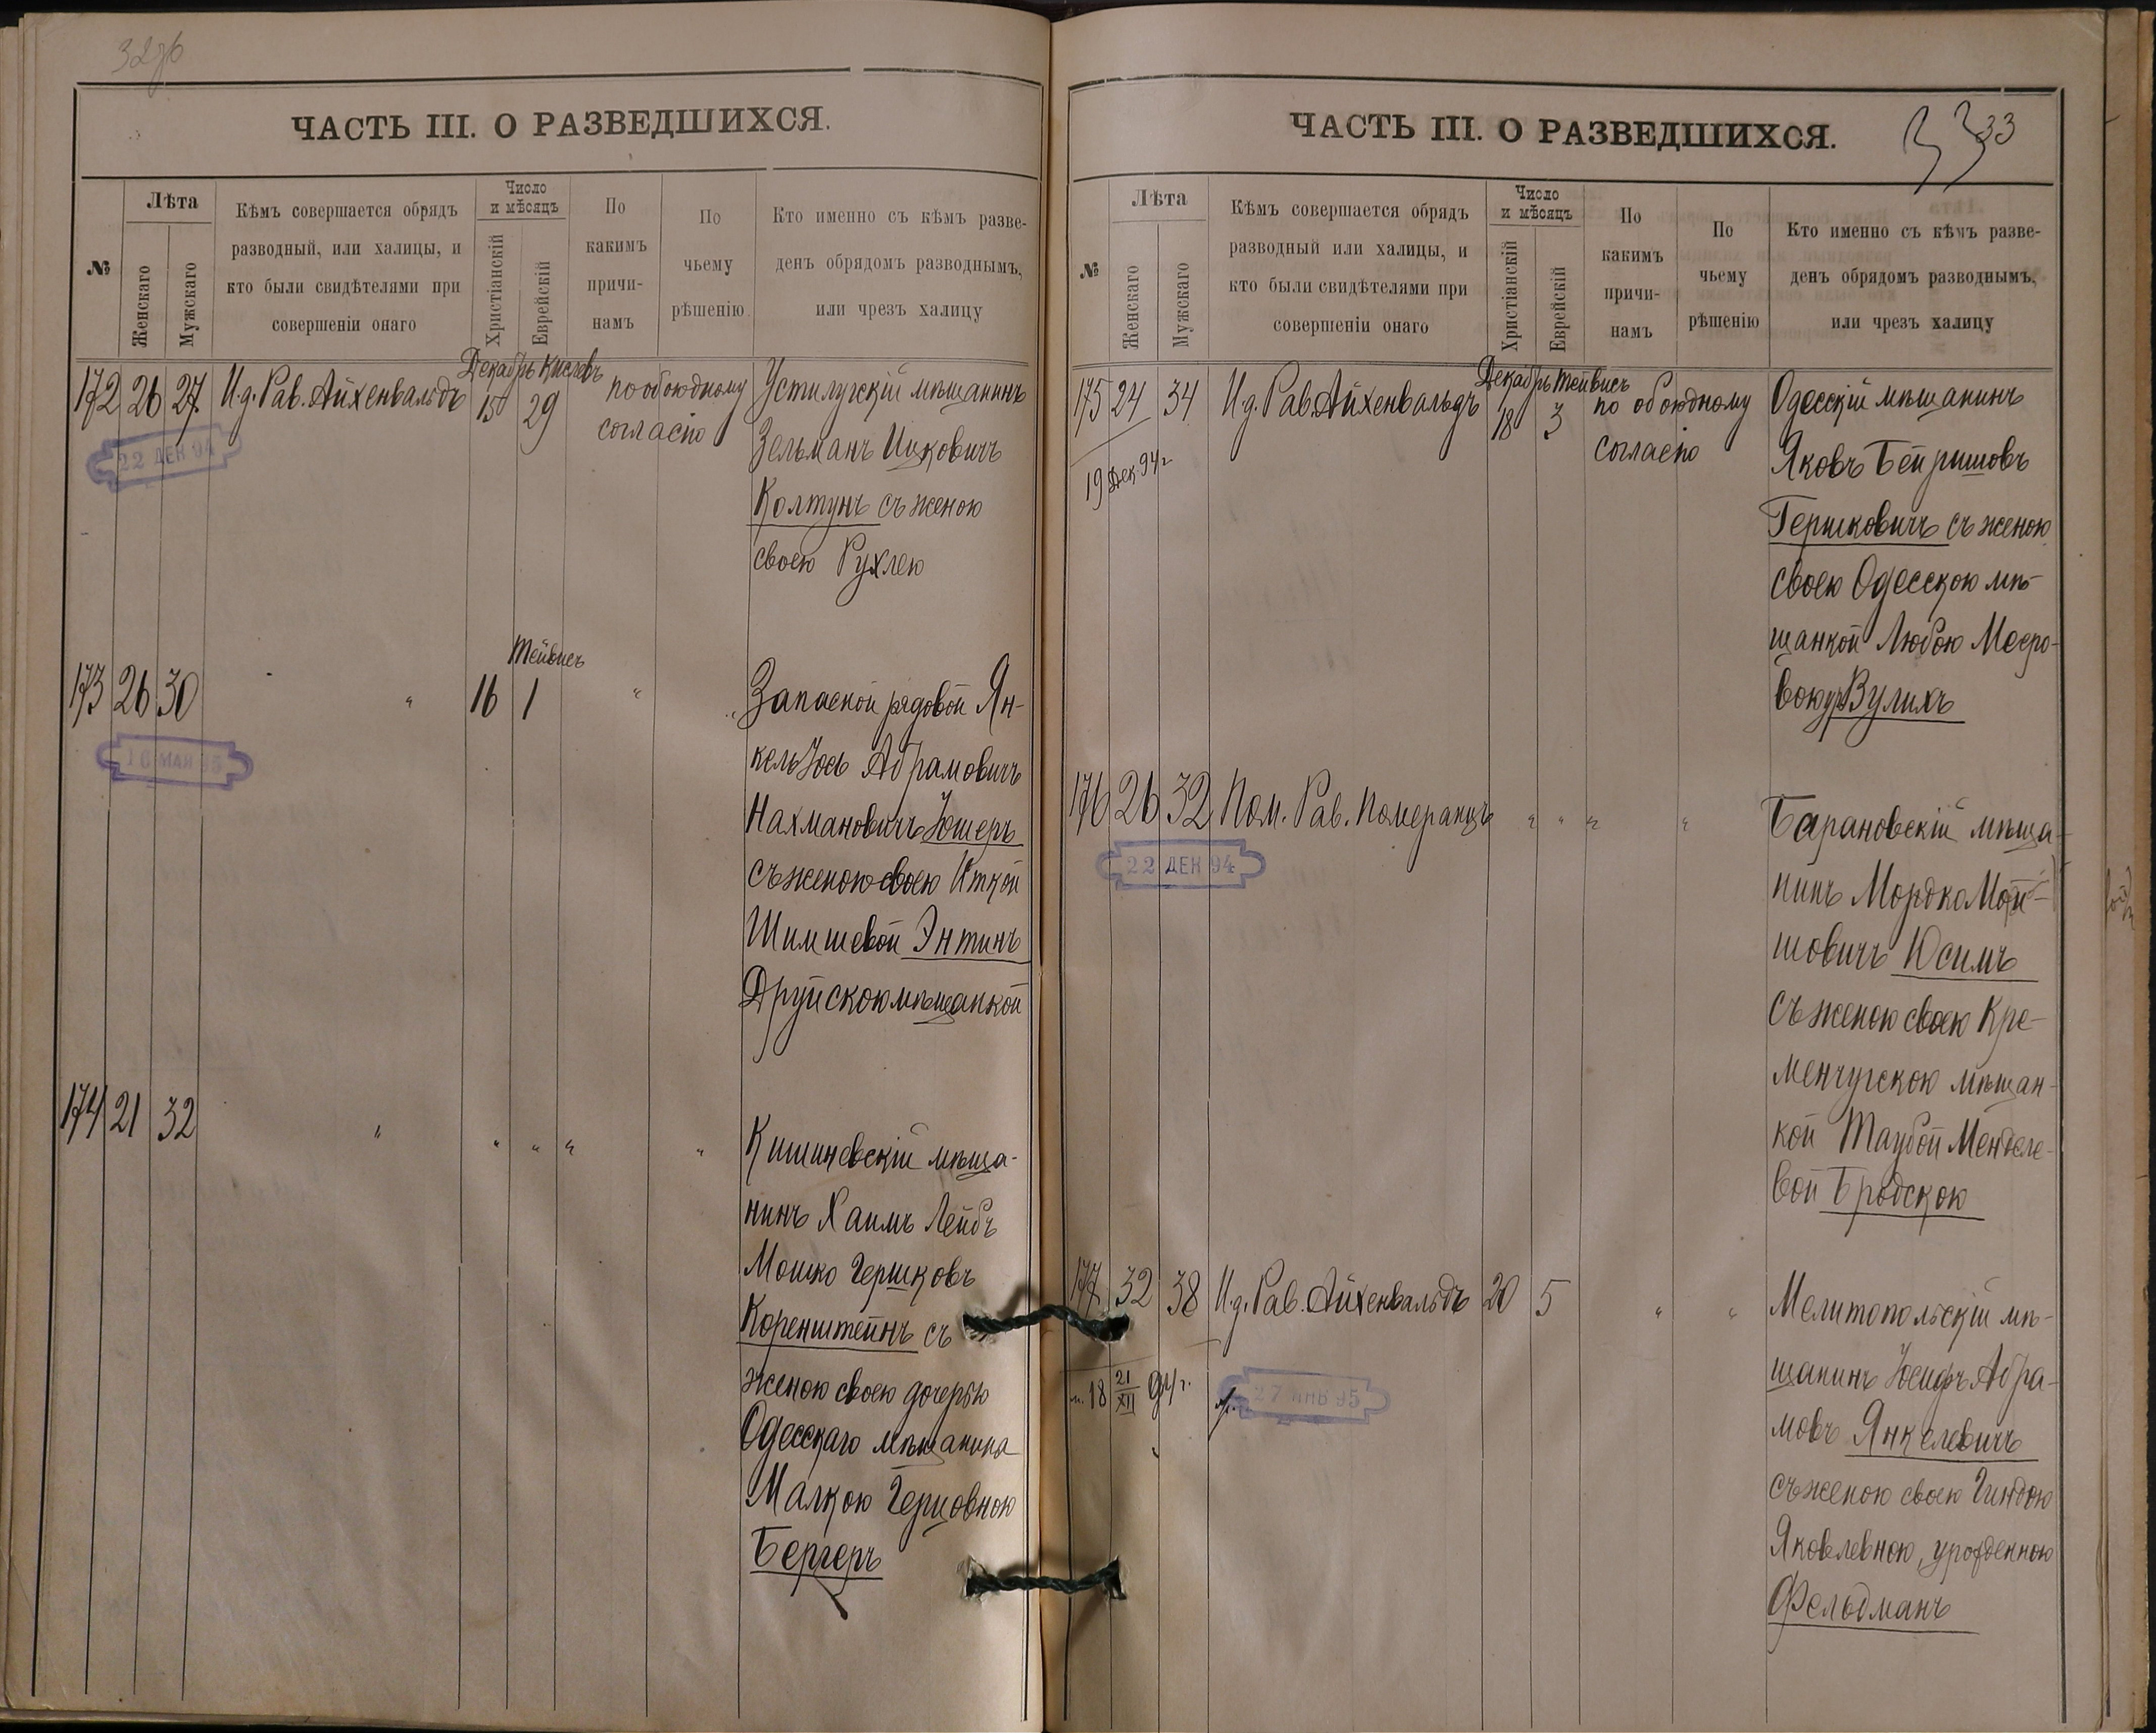 32об
ЧАСТЬ III. О РАЗВЕДШИХСЯ.
№
Лѣта
Женскаго
Мужскаго
Кѣмъ совершается обрядъ
разводный, или халицы, и
кто были свидѣтелями при
совершеніи онаго
Число
и мѣсяцъ
Христіанскій
Еврейскій
По
какимъ
причи-
намъ
По
чьему
рѣшенію
Кто именно съ кѣмъ разве-
денъ обрядомъ разводнымъ,
или чрезъ халицу
Декабрь Кислевъ
172 26 27 И.д. Рав. Айхенвальдъ 15 29 по обоюдному Устилугскій мѣщанинъ
согласію Зельманъ Ицковичъ
22 ДЕК 94
Колтунъ съ женою
своею Рухлею
Тейвисъ
173 26 30 " 16 1 " Запасной рядовой Ян-
16 МАЯ 95
кель Іось Абрамовичъ
Нахмановичъ Юшеръ
съ женою своею Иткой
Шимшевой Энтинъ
Друйскою мѣщанкой
174 21 32 " " " " " Кишиневскій мѣща-
нинъ Хаимъ Лейбъ
Мошко Гершковъ
Коренштейнъ съ
женою своею дочерью
Одесскаго мѣщанина
Малкою Герцовною
Бергеръ
ЧАСТЬ III. О РАЗВЕДШИХСЯ.
33
№
Лѣта
Женскаго
Мужскаго
Кѣмъ совершается обрядъ
разводный или халицы, и
кто были свидѣтелями при
совершеніи онаго
Число
и мѣсяцъ
Христіанскій
Еврейскій
По
какимъ
причи-
намъ
По
чьему
рѣшенію
Кто именно съ кѣмъ разве-
денъ обрядомъ разводнымъ,
или чрезъ халицу
Декабрь Тейвисъ
175 24 34 И.д. Рав. Айхенвальдъ 18 3 по обоюдному Одесскій мѣщанинъ
согласію Яковъ Беришовъ
19 Дек. 94 г.
Гершковичъ съ женою
своею Одесскою мѣ-
щанкой Любою Мееро-
вою Вулихъ
176 26 32 Пом. Рав. Померанцъ " " " " Барановскій мѣща-
22 ДЕК 94
нинъ Мордко Мой-
шовичъ Юсимъ
съ женою своею Кре-
менчугскою мѣщан-
кой Таубой Менделе-
вой Бродскою
177 32 38 И.д. Рав. Айхенвальдъ 20 5 " " Мелитопольскій мѣ-
18 21/XII 94 г.
27 ЯНВ 95
щанинъ Іосифъ Абра-
мовъ Янкелевичъ
съ женою своею Гиндою
Яковлевною, урожденною
Фельдманъ